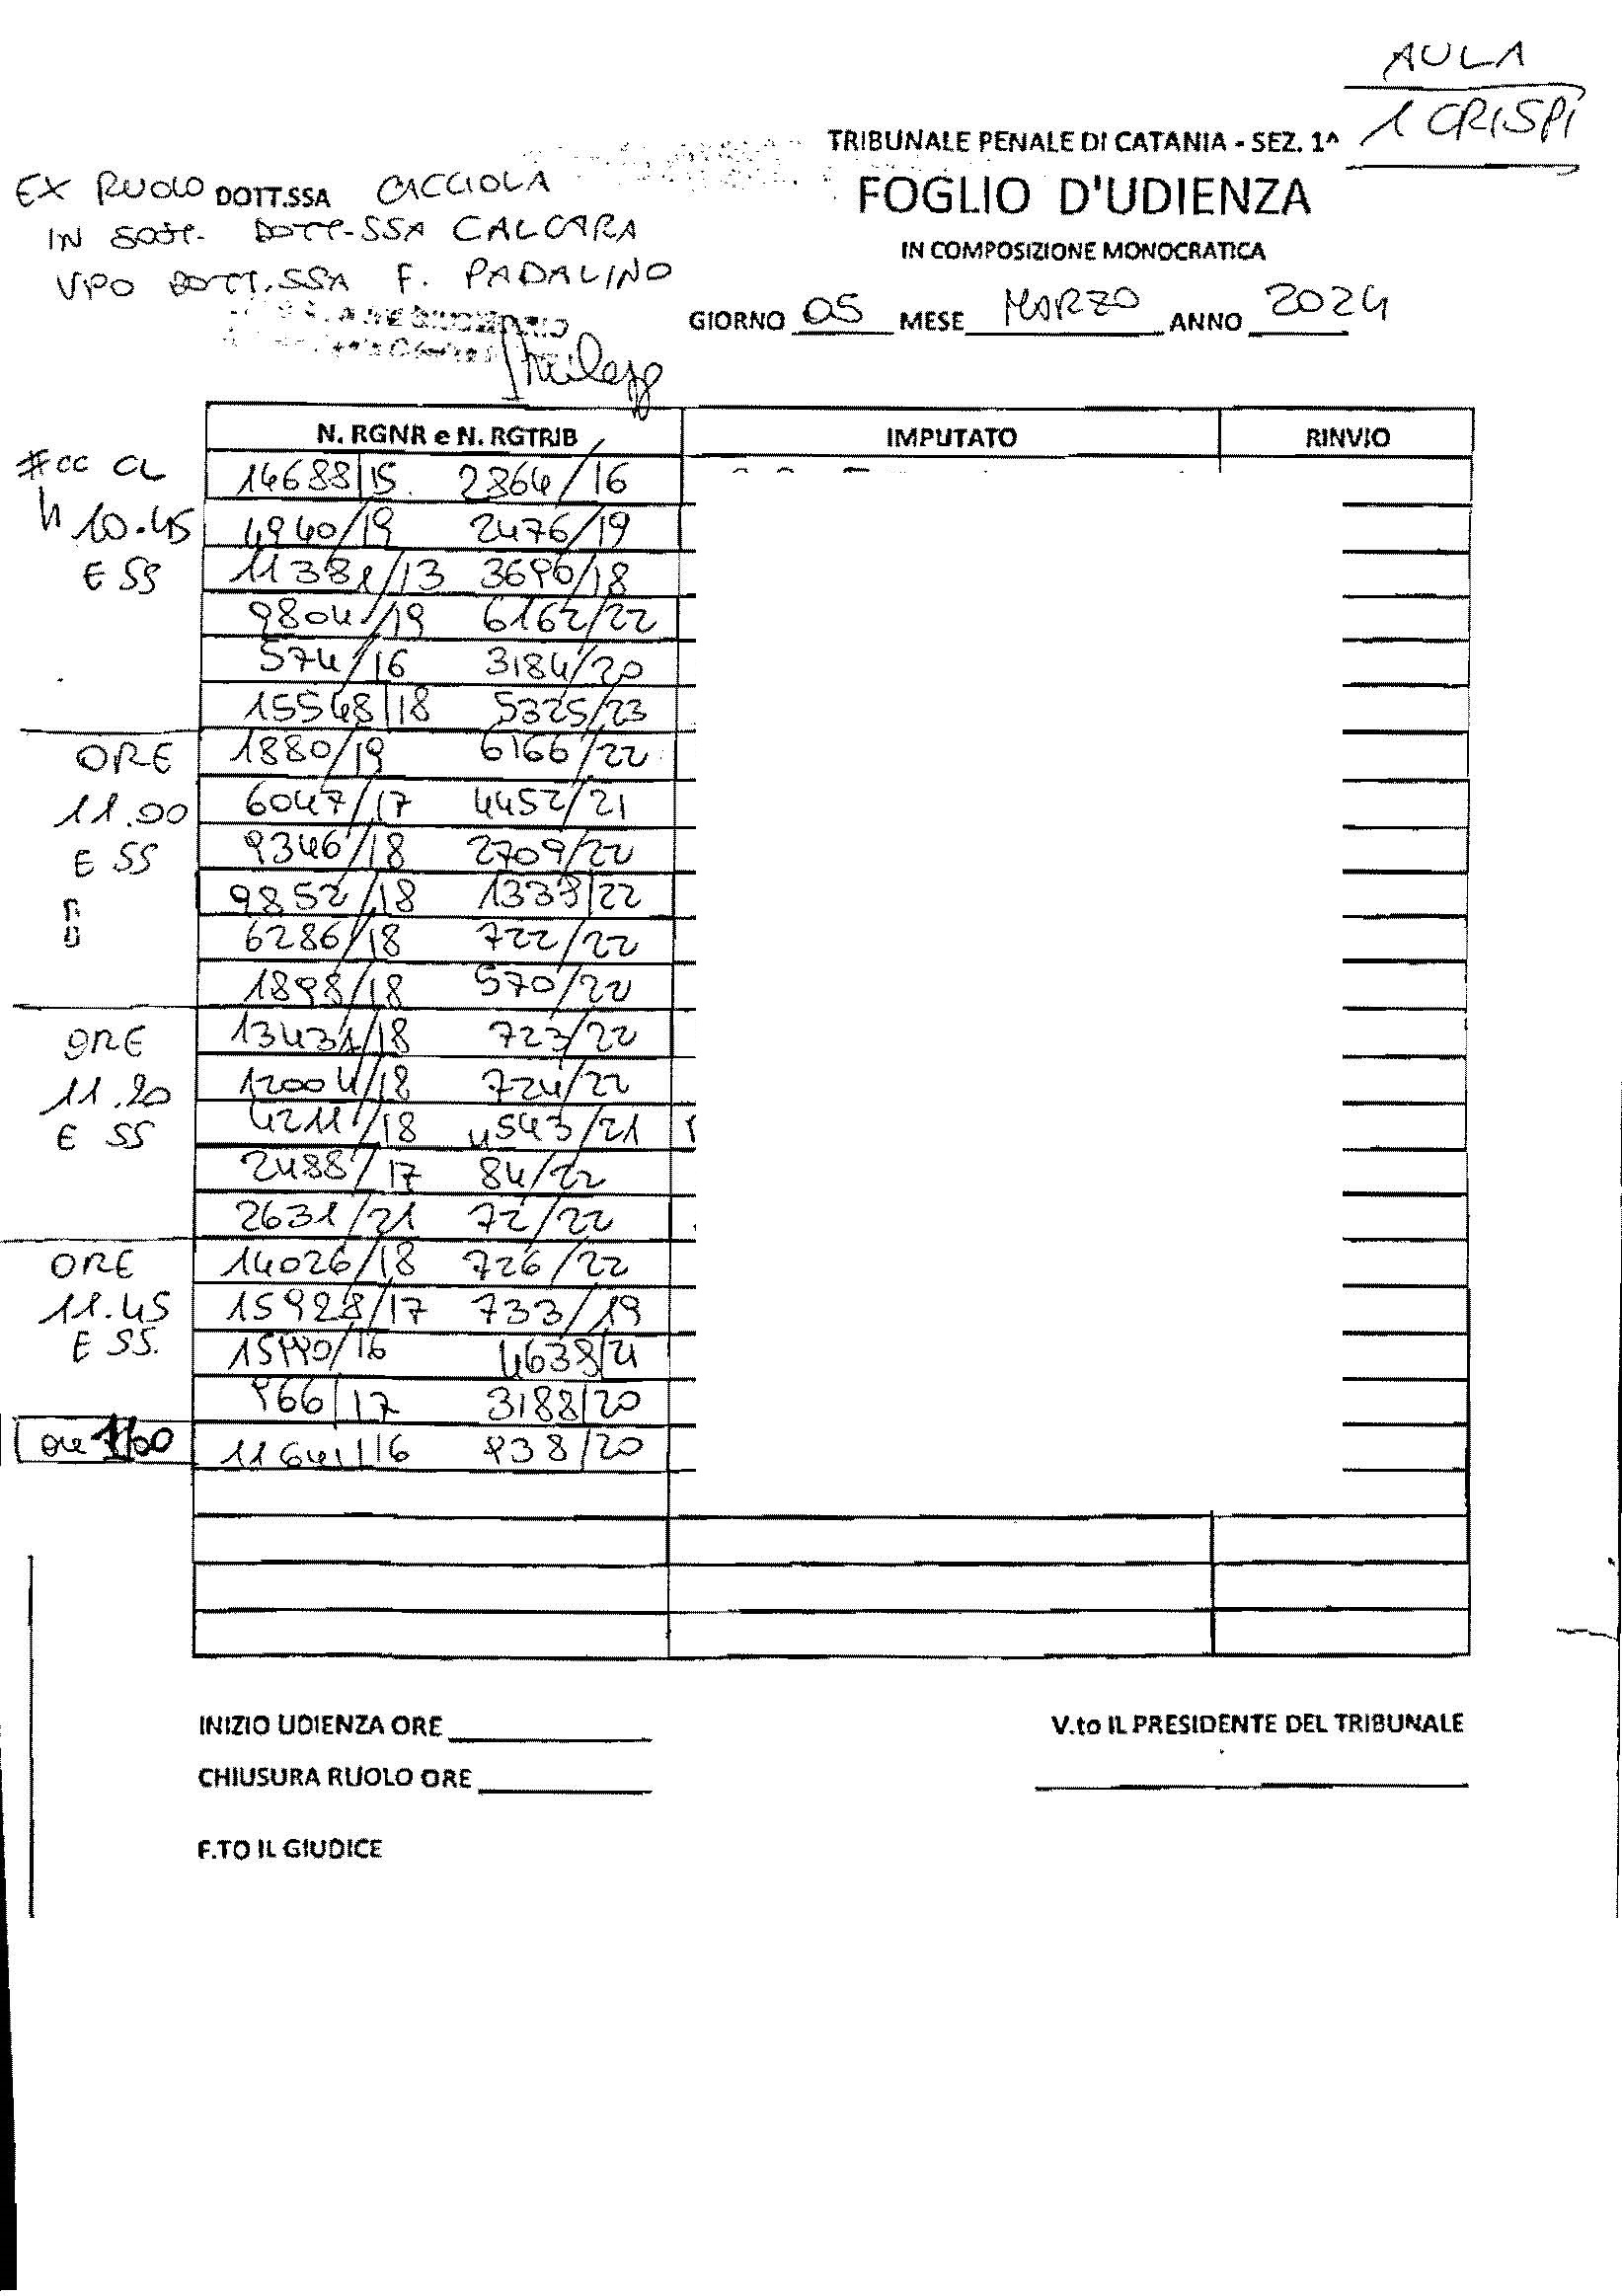 AULA
1 CRISPI
TRIBUNALE PENALE DI CATANIA - SEZ. 1^
FOGLIO D'UDIENZA
IN COMPOSIZIONE MONOCRATICA
EX RUOLO DOTT.SSA CACCIOLA
IN SOST. DOTT.SSA CALCARA
VPO DOTT.SSA F. PADALINO
GIORNO 05 MESE MARZO ANNO 2024
N. RGNR e N. RGTRIB IMPUTATO RINVIO
14688/15. 2864/16
10.45 4940/19 2476/19
E SS 11381/13 3696/18
9804/19 6162/22
574/16 3184/20
15548/18 5325/23
ORE 1880/19 6166/22
11.00 6047/17 4452/21
E SS 9346/18 2709/22
9852/18 1339/22
6286/18 722/22
1898/18 570/22
ORE 13431/18 723/22
11.20 12004/18 724/22
E SS 4211/18 4543/21
2488/17 84/22
2631/21 72/22
ORE 14026/18 726/22
11.45 15928/17 733/19
E SS. /16
966/17 3188/20
ore /16 938/20
INIZIO UDIENZA ORE
V.to IL PRESIDENTE DEL TRIBUNALE
CHIUSURA RUOLO ORE
F.TO IL GIUDICE